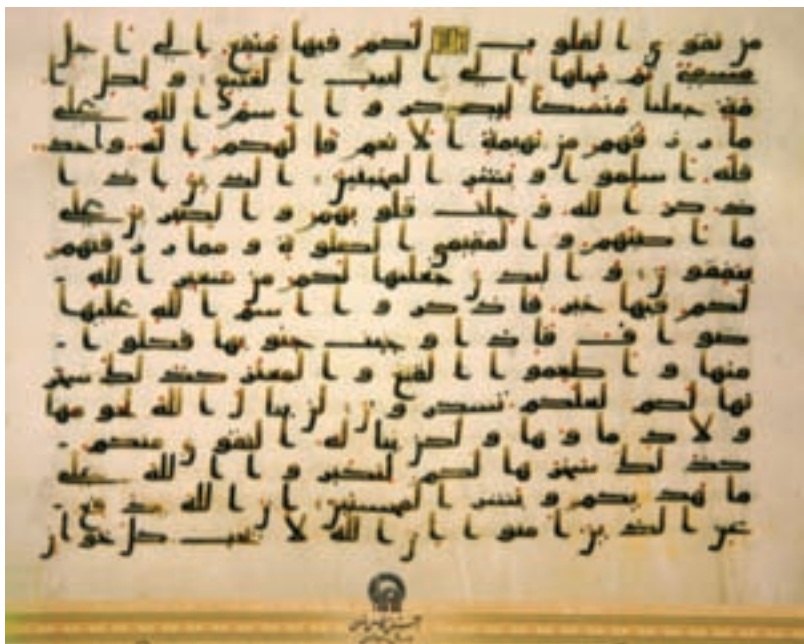 من تقوى القلوب لكم فيها منفع الى اجل
مسمى ثم محلها الى البيت العتيق و لكل ا
مة جعلنا منسكا ليذكروا اسم الله على
ما رزقهم من بهيمة الانعم فالهكم اله وحد
فله اسلموا و بشر المخبتين الذين اذا
ذكر الله وجلت قلوبهم و الصبرين على
ما اصبهم و المقيمى الصلوة و مما رزقنهم
ينفقون و البدن جعلنها لكم من شعير الله
لكم فيها خير فاذكروا اسم الله عليها
صواف فاذا وجبت جنوبها فكلوا
منها و اطعموا القنع و المعتر كذلك سخر
نها لكم لعلكم تشكرون لن ينال الله لحومها
و لا دماوها و لكن يناله التقوى منكم
كذلك سخرها لكم لتكبروا الله على
ما هديكم و بشر المحسنين ان الله يدفع
عن الذين امنوا ان الله لا يحب كل خوان